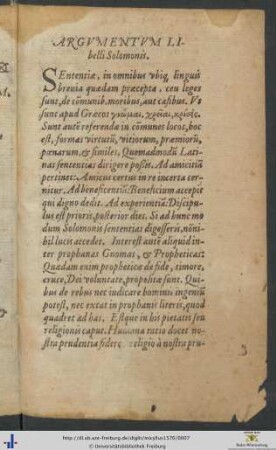 ARGVMENTVM LI-
belli Solomonis.
SEntentiæ, in omnibus ubiq; linguis
breuia quædam præcepta. ceu leges
sunt, de cōmunib. moribus, aut casibus. Vt
sunt apud Græcos γνῶμαι, χρεῖαι,
Sunt autē referendæ in cōmunes locos, hoc
est, formas virtutū, vitiorum, præmiorū,
pœnarum, & similes, Quemadmodū La-
tinas sententias dirigere possis. Ad amicitiā
pertinet: Amicus certus in re incerta cer-
nitur. Ad beneficentiā: Beneficium accepit
qui digno dedit. Ad experientiā: Discipu-
lus est prioris, posterior dies. Si ad hunc mo
dum Solomonis sententias digesseris, nōni-
hil lucri accedet. Interest autē aliquid in-
ter prophanas Gnomas, & Propheticas:
Quædam enim propheticæ de fide, timore,
cruce, Dei voluntate, propositæ sunt. Qui-
bus de rebus nec iudicare hominis ingeniū
potest, nec extat in prophanis literis, quod
quadret ad has. Estque in his pietatis seu
religionis caput. Humana ratio docet no-
stra prudentia fidere religio à nostra pru-
3
http://dl.ub.uni-freiburg.de/diglit/
© Universitätsbibliothek Freiburg
Baden-Württemberg